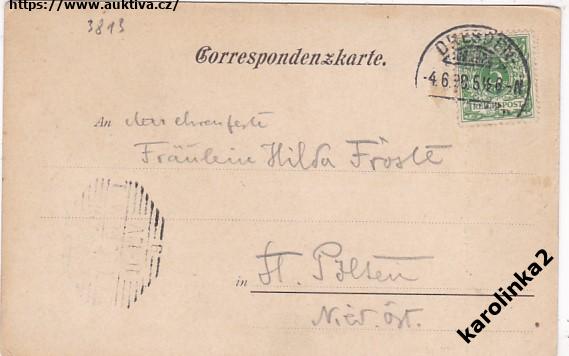 https://www.auktiva.cz/
3813
Correspondenzkarte.
DRESDEN
-4.6.98.5
8-N.
REICHSPOST
An
Fräulein Hilda Fröstl
in St. Pölten
Nied. Öst.
karolinka2